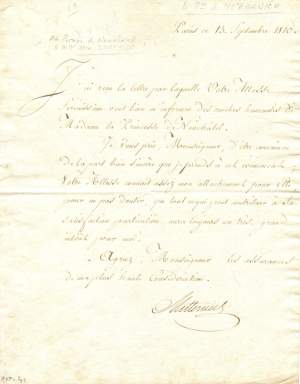 Paris ce 13. Septembre 1810.
J'ai reçu la lettre par laquelle Votre Altesse
Sérénissime veut bien m'informer des couches heureuses de
Madame la Princesse de Neuchâtel.
Je vous prie, Monseigneur, d'être convaincu
de la part bien sincère que je prends à cet
Votre Altesse connait assez mon attachement pour Elle
pour ne pas douter, que tout ce qui peut contribuer à Sa
satisfaction particulière aura toujours un très grand
intérêt pour moi.
Agréez, Monseigneur, les assurances
de ma plus haute Considération.
Metternich